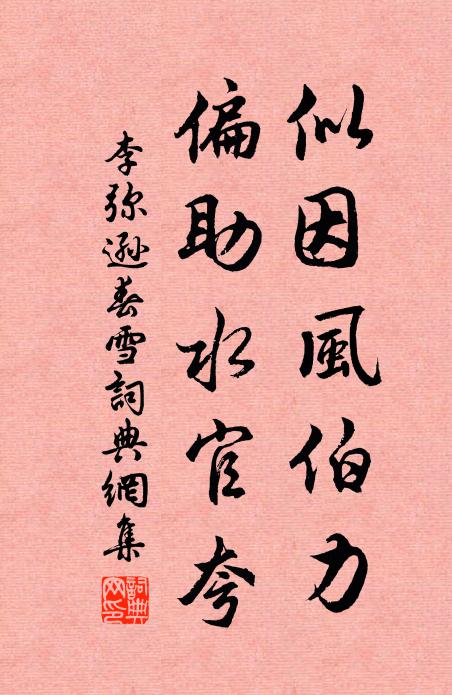 似因風伯力
偏助水官夸
李弥遜春雪詞典網集
詞典網印